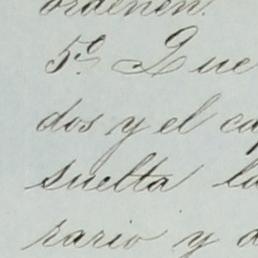 ordenen.
5º Que
dos y el ca
suelta la
rario y d